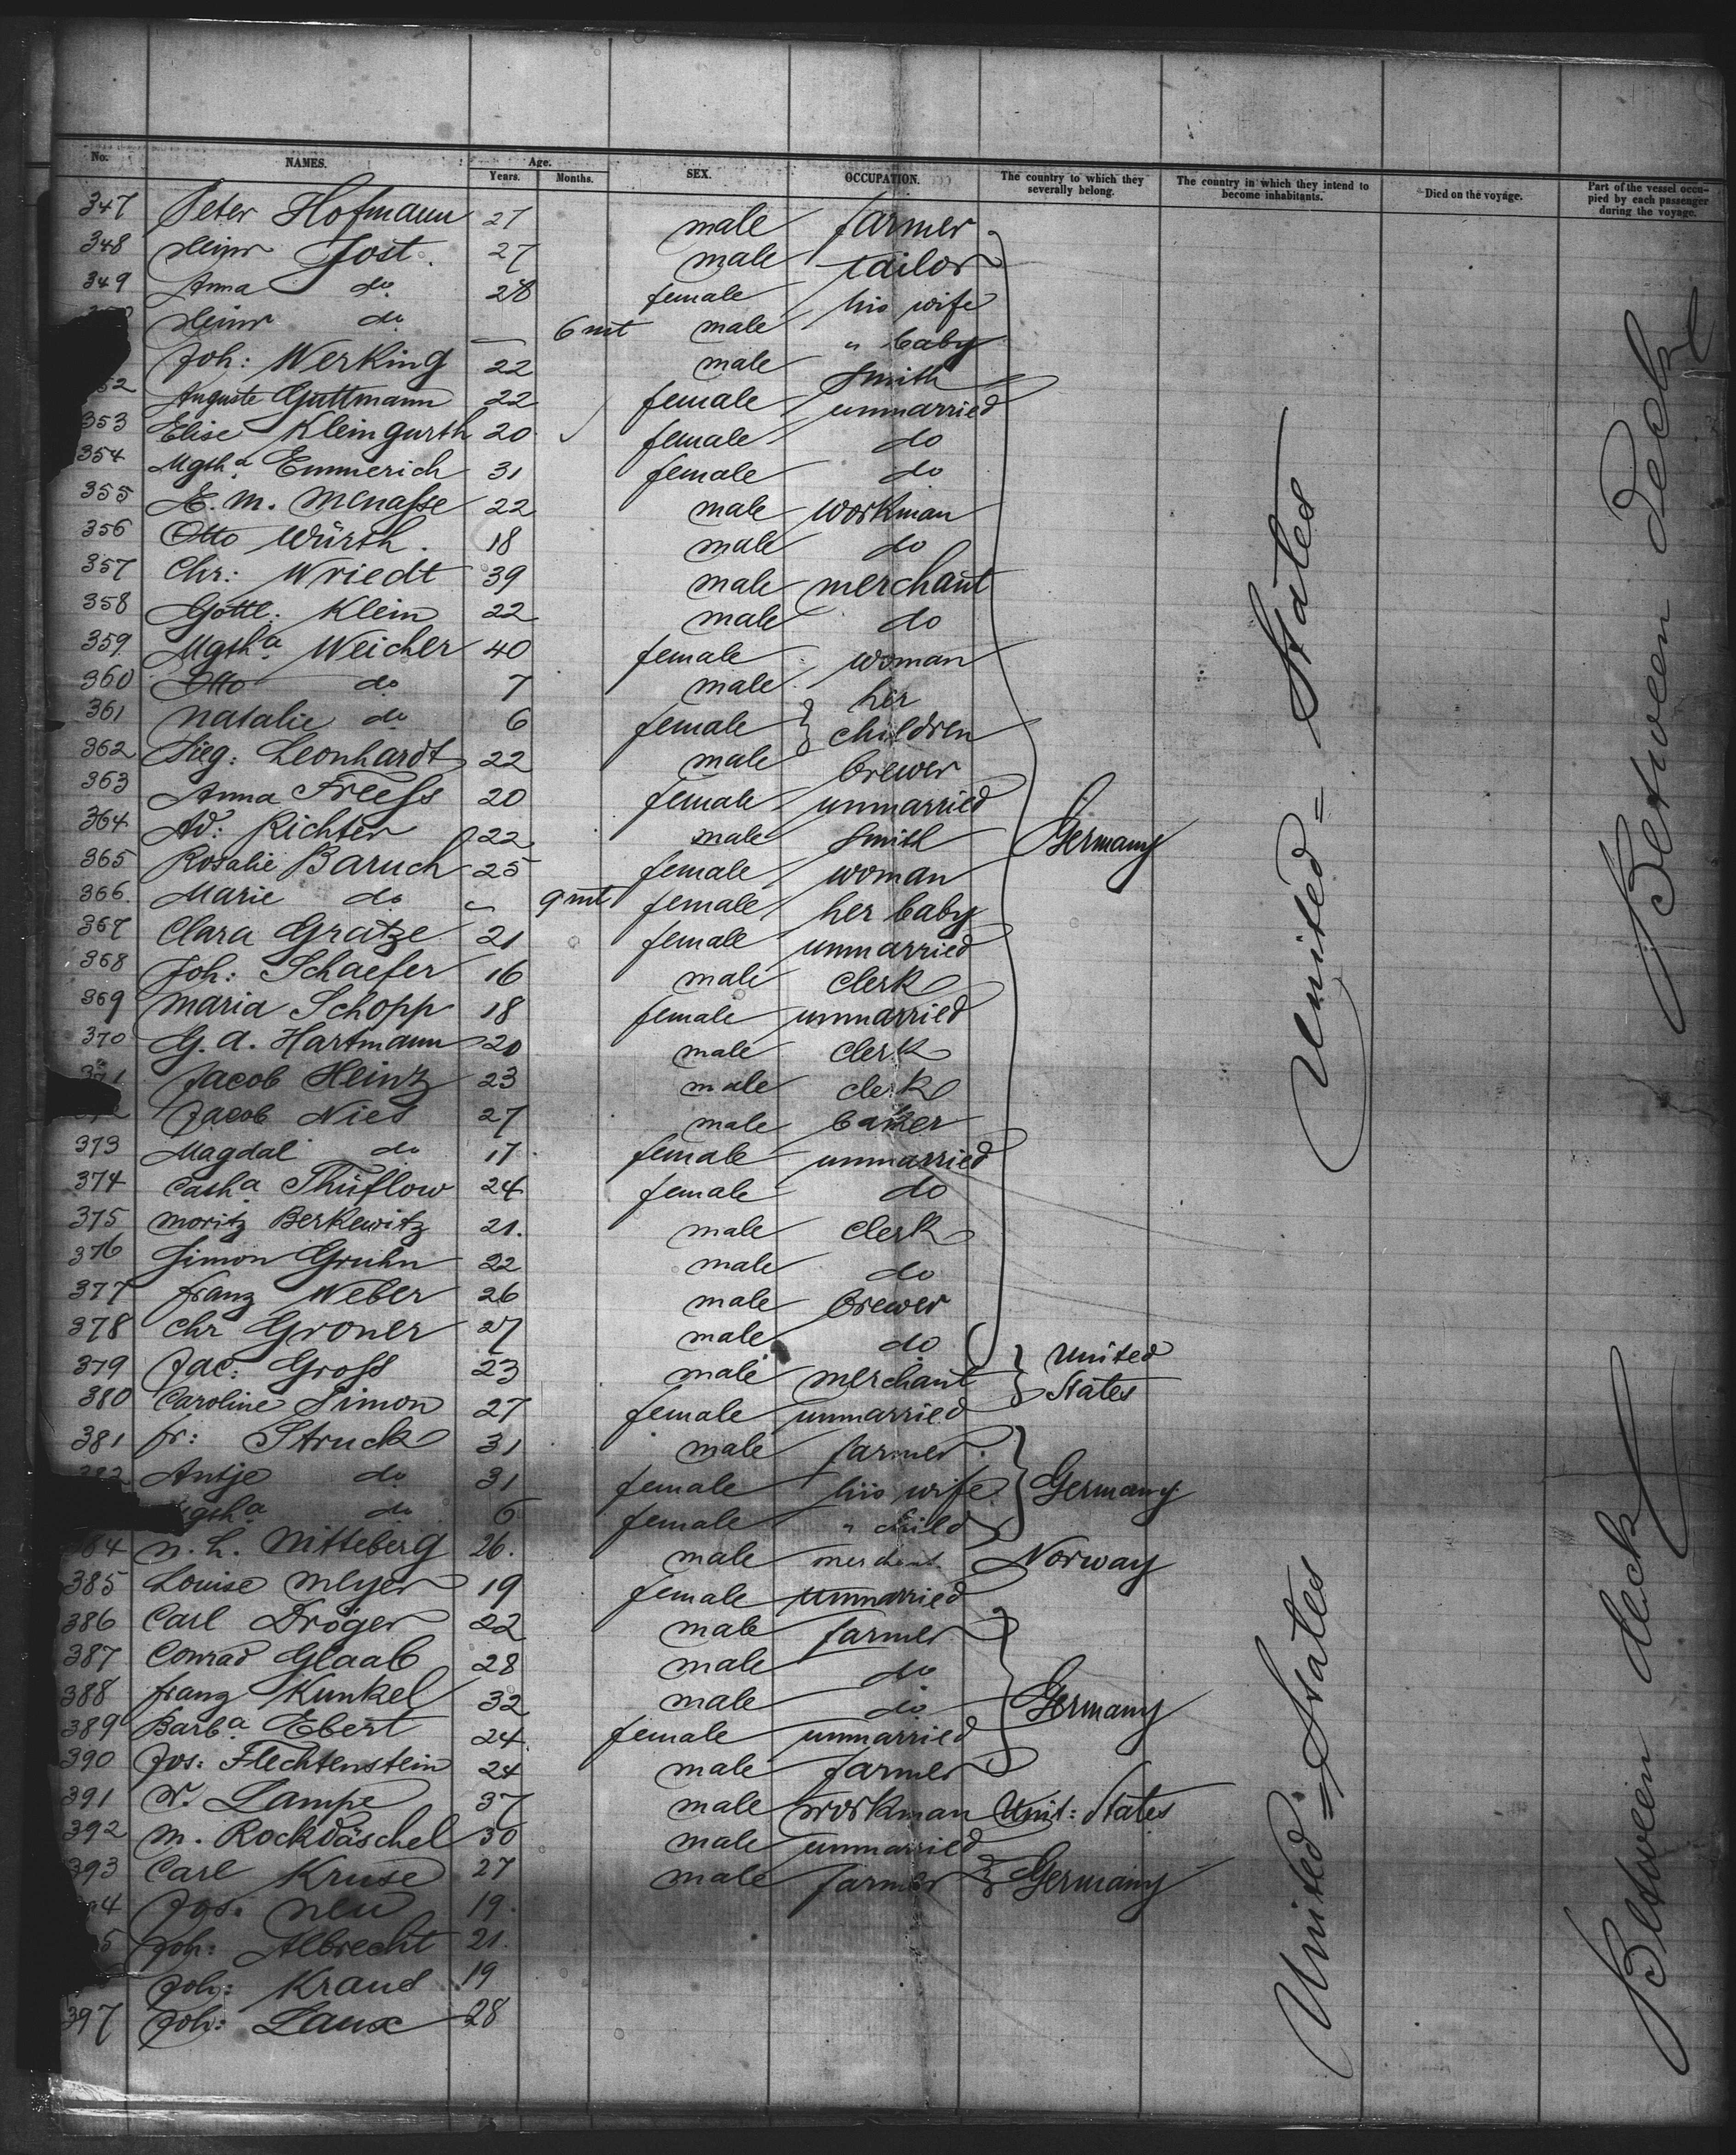 No. NAMES. Age. Years. Months. SEX. OCCUPATION. The country to which they severally belong. The country in which they intend to become inhabitants. Died on the voyage. Part of the vessel occupied by each passenger during the voyage.
347 Peter Hofmann 27 male farmer
348 Heinr Jost. 27 male tailor
349 Anna do 28 female his wife
Heinr do — 6 mt male " baby
Joh: Werking 22 male smith
52 Auguste Guttmann 22 female unmarried
353 Elise Kleingurth 20 female do
354 Mgth a Emmerich 31 female do
355 E. M. Menasse 22 male workman
356 Otto Würth. 18 male do
357 Chr: Wriedt 39 male merchant
358 Gottl: Klein 22 male do
359 Mgth a Weicher 40 female woman
360 Otto do 7 male her
361 Natalie do 6 female } children
362 Sieg: Leonhardt 22 male brewer
363 Anna Freess 20 female unmarried
364 Ad: Richter 22 male smith Germany
365 Rosalie Baruch 25 female woman
366. Marie do — 9 mt female her baby
367 Clara Gratze 21 female unmarried
368 Joh: Schaefer 16 male clerk
369 Maria Schopp 18 female unmarried
370 G. A. Hartmann 20 male clerk
371 Jacob Heinz 23 male clerk
Jacob Nies 27 male baker
373 Magdal do 17 female unmarried
374 Cath a Thüflow 24 female do
375 Moritz Berkewitz 21. male clerk
376 Simon Gruhn 22 male do
377 Franz Weber 26 male brewer
378 Chr Groner 27 male do
379 Jac: Gross 23 male merchant } United
380 Caroline Simon 27 female unmarried } States
381 Fr: Struck 31 male farmer
382 Antje do 31 female his wife } Germany
gth a do 6 female " child
384 N. H. Nitteberg 26. male merchant Norway
385 Louise Meyer 19 female unmarried
386 Carl Dröger 22 male farmer
387 Conrad Glaab 28 male do
388 Franz Kunkel 32 male do } Germany
389 Barb a Ebert 24. female unmarried
390 Jos: Flechtenstein 24 male farmer
391 W. Lampe 37 male workman Unit: States
392 M. Rockdäschel 30 male unmarried
393 Carl Kruse 27 male farmer } Germany
94 Jos. Neu 19.
5 Joh: Albrecht 21.
Joh: Kraus 19
397 Joh: Laux 28
United = States
United = States
Between Deck
Between deck